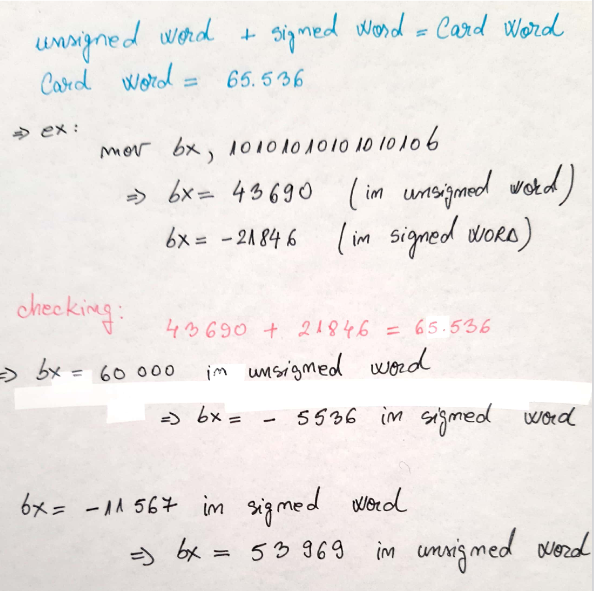 unsigned word + signed word = Card Word
Card Word = 65.536
⇒ ex:
mov bx, 1010101010101010b
⇒ bx = 43690 (in unsigned word)
bx = -21846 (in signed WORD)
checking:
43690 + 21846 = 65.536
⇒ bx = 60 000 in unsigned word
⇒ bx = - 5536 in signed word
bx = -11 567 in signed word
⇒ bx = 53 969 in unsigned word